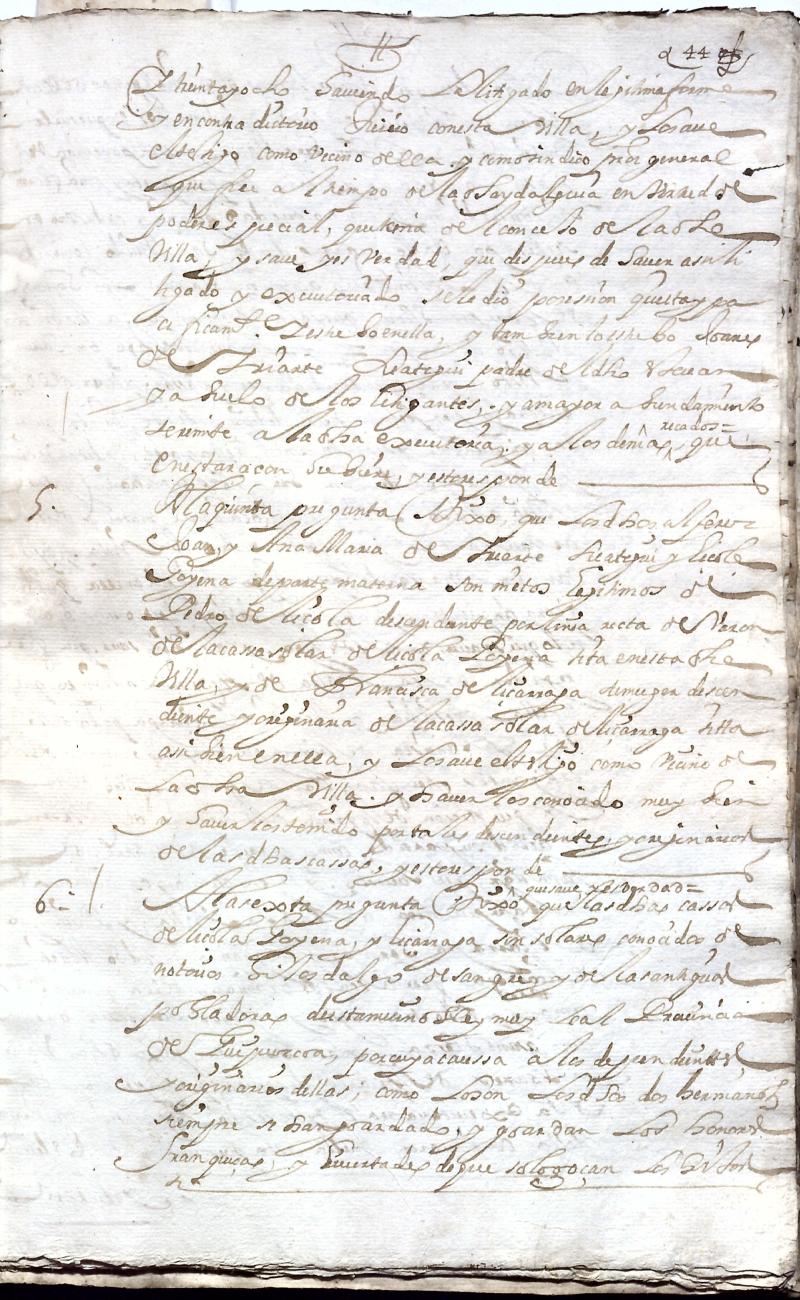 11
44
Y treinta y ocho haviendo litigado en lexitima forma
y en contradictorio Juicio con esta Villa, y lo save
el testigo como Vecino de ella y como sindico pror general
que fue al tiempo de la dha ydalguia en Virtud de
poder especial, que tenia del concejo de la dha
Villa, y save yes Verdad, que despues de haver assi li
tigado y executoriado se le dio posesion quieta y pa
cificamte. estubo en ella, y tambien lo estubo Joanes
de Yriarte Heategui padre del dho
y abuelo de los litigantes, y a mayor abundamiento
se remite a la dha executoria, y a los demas recados= que
en esta raçon hubiere, y esto responde
5. A la quinta pregunta Dixo, que los dhos alferez
Joan, y Ana Maria de Yriarte Heategui y liçola
Goyena de parte materna son nietos lexitimos de
Pedro de liçola descendiente por linia recta de Varon
de la cassa solar de liçola Goyena sita en esta dha
Villa, y de Francisca de liçarraga su muger descen
diente y originaria de la cassa solar de liçarraga sitta
assi bien en ella, y lo save el testigo como Vecino de
la dha Villa y haverlos conocido muy bien
y haverlos tenido por tales descendientes, y orijinarios
de las dhas cassas, y esto responde
6. A la sexta pregunta Dixo que save yes Verdad= que las dhas cassas
de liçola Goyena, y liçarraga son solares conocidos de
notorios hijosdalgo de sangre y de las antiguas
pobladoras de esta muy noble y muy leal Provincia
de Guipuzcoa, por cuya caussa a los descendientes
y originarios dellas, como lo son los dhos dos hermanos
siempre se han goardado, y goardan los honores
franqueças, y livertades de que solo goçan los